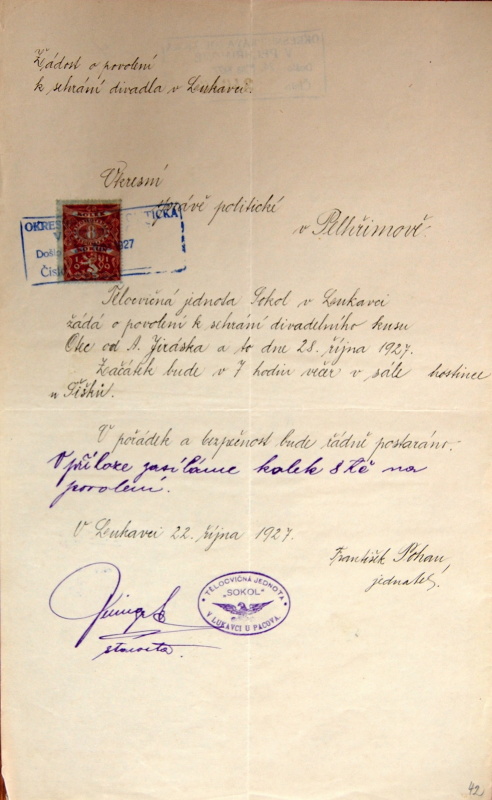 Žádost o povolení
k sehrání divadla v Lukavci.
Okresní
správě politické
v Pelhřimově.
KOLEK
OKRES
POLITICKÁ
V
Došlo
1927
Číslo
Tělocvičná jednota Sokol v Lukavci
žádá o povolení k sehrání divadelního kusu
Otec od A. Jiráska a to dne 28. října 1927.
Začátek bude v 7 hodin večer v sále hostince
u Šišků.
O pořádek a bezpečnost bude řádně postaráno.
V příloze zasíláme kolek 8 Kč na
povolení.
V Lukavci 22. října 1927.
František
jednatel
TĚLOCVIČNÁ JEDNOTA
„SOKOL"
V LUKAVCI U PACOVA.
starosta.
42